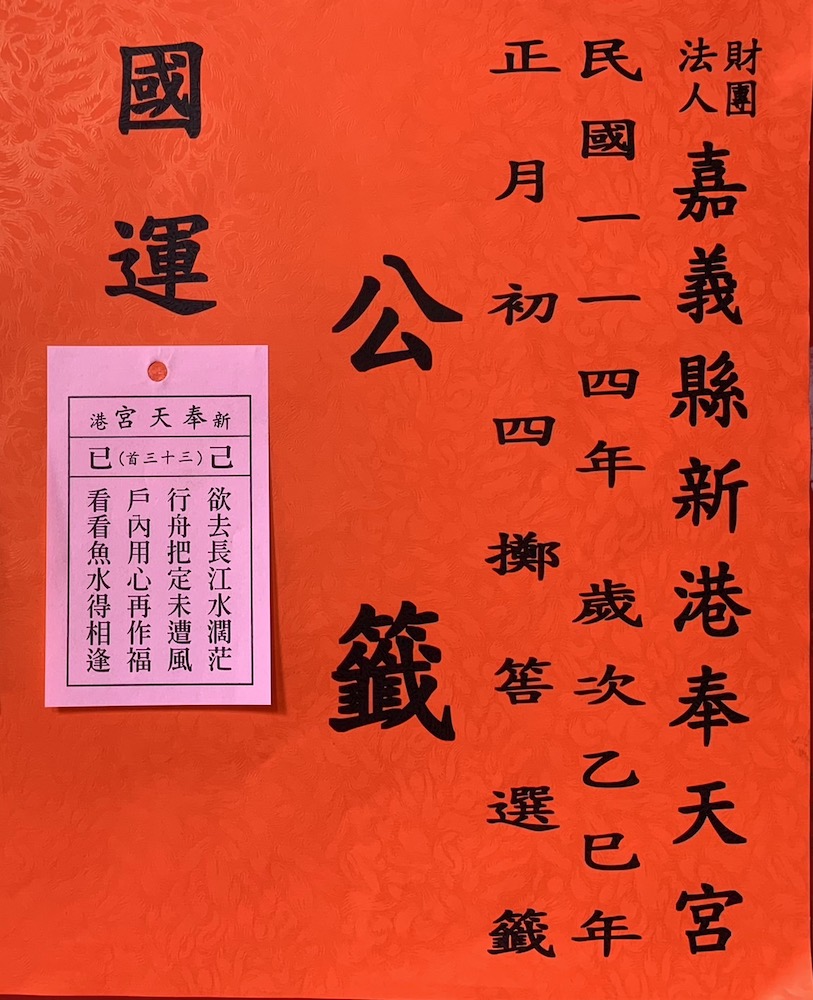 財團
法人
嘉義縣新港奉天宮
民國一一四年歲次乙巳年
正月初四擲筶選籤
公籤
國運
新奉天宮港
己(三十三首)巳
欲去長江水濶茫
行舟把定未遭風
戶內用心再作福
看看魚水得相逢